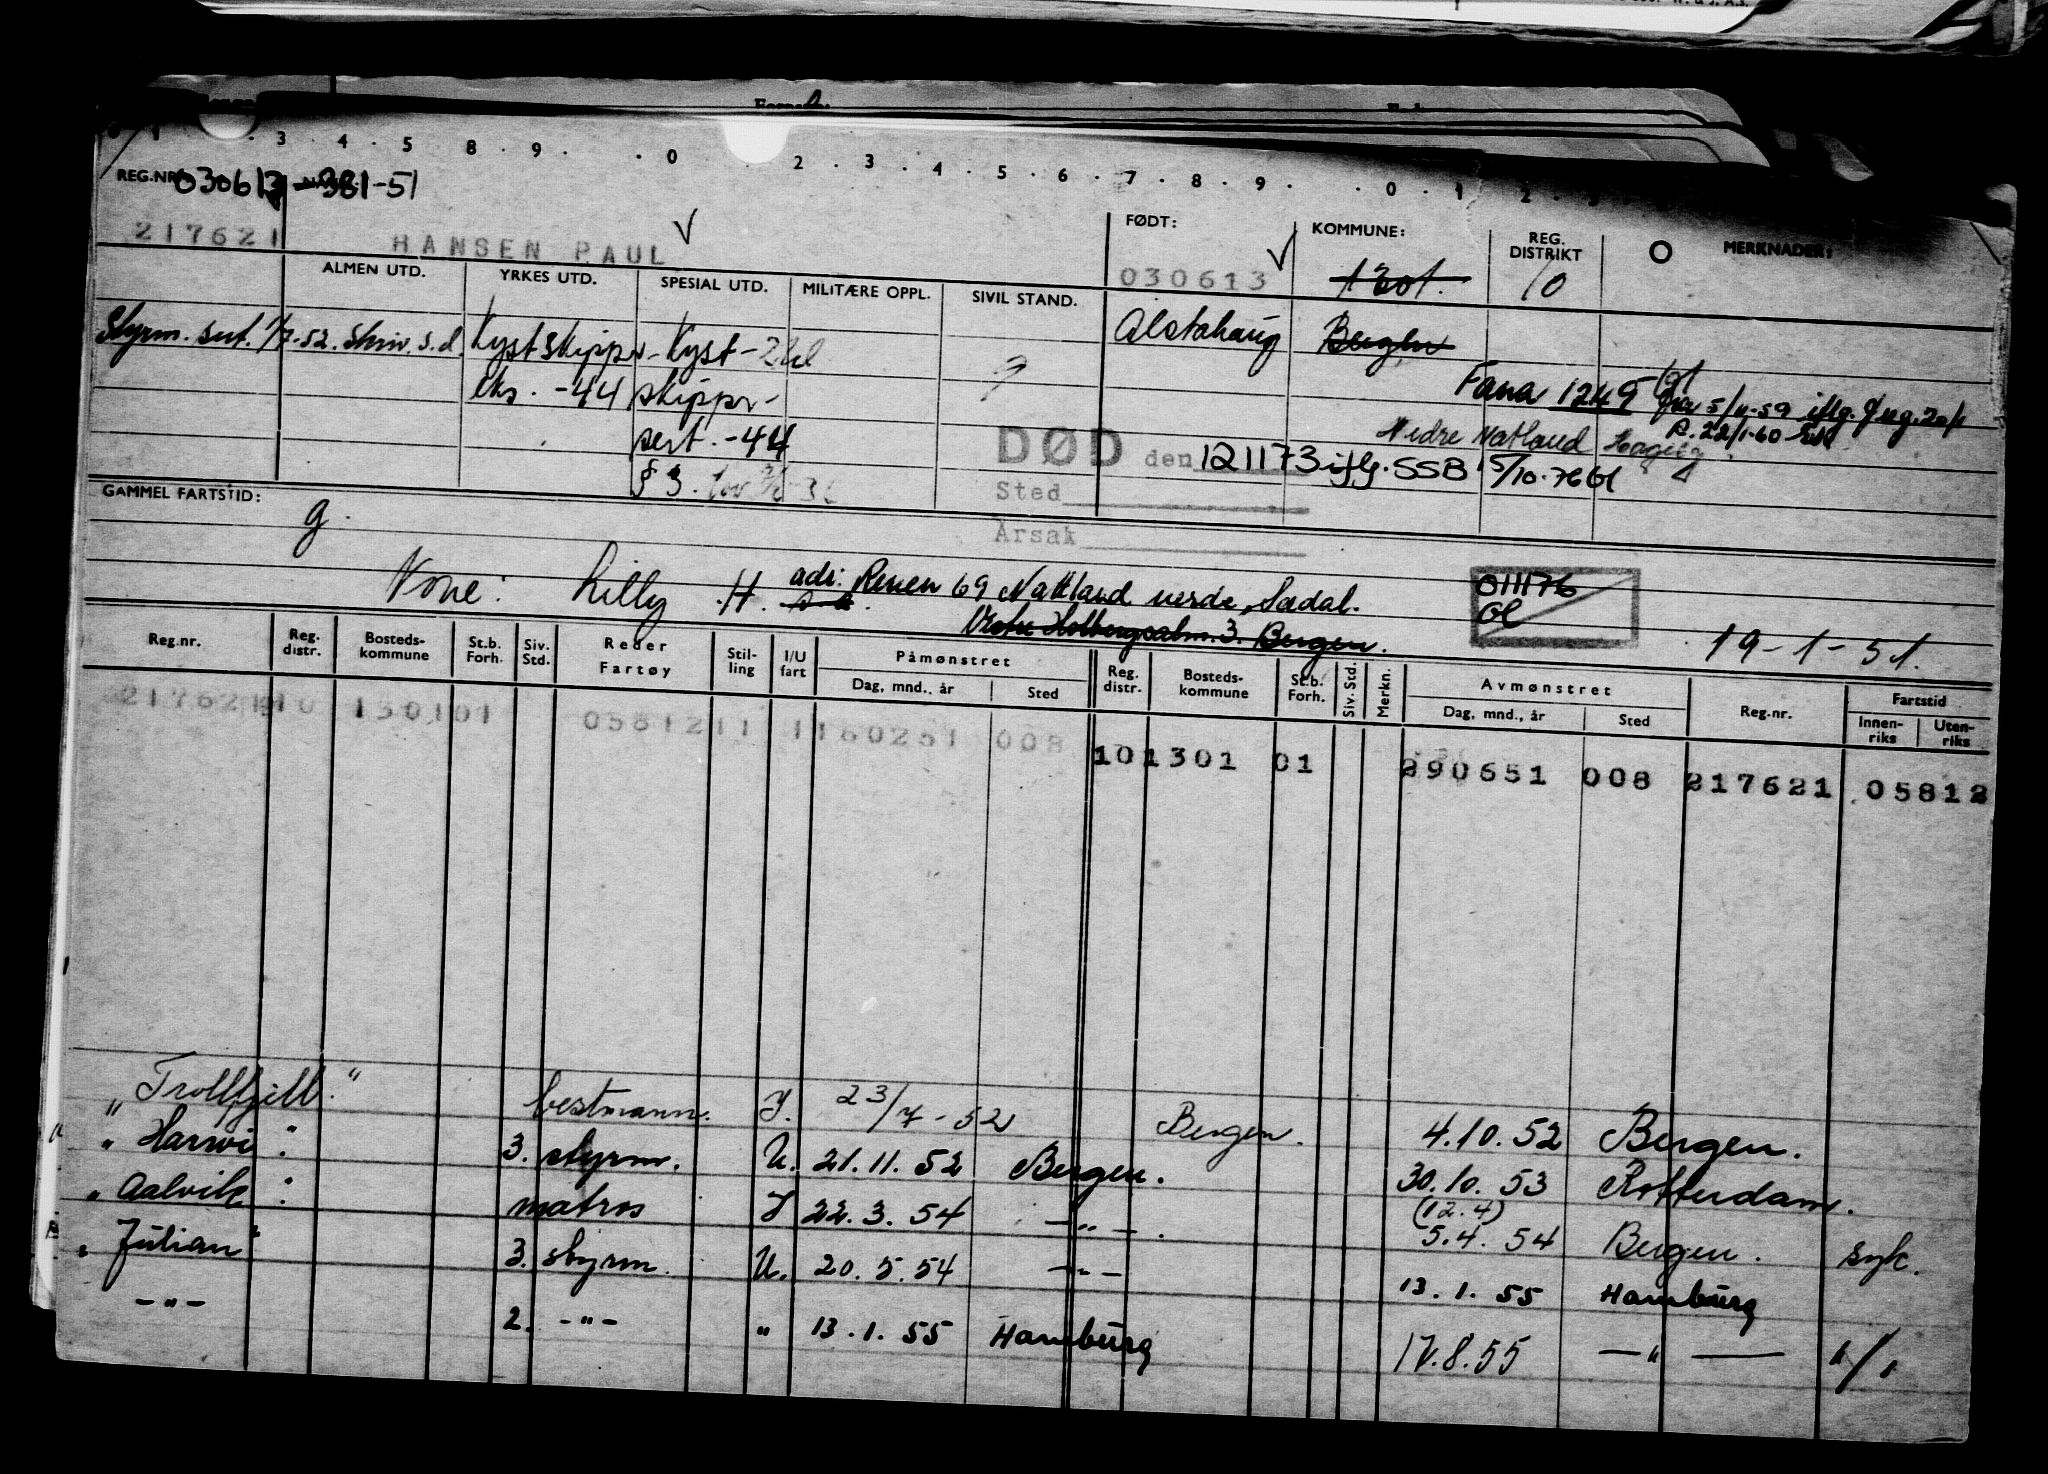 3 . 4 . 5 8 . 9 . . 0 2 . 3 . 4 . 5 . 6 . 7 . 8 . 9 . . 0 . 1 2 .
REG.NR. 030613-381-51
217621 HANSEN PAUL
FØDT: KOMMUNE: REG. DISTRIKT MERKNADER:
030613 1301. 10
ALMEN UTD. YRKES UTD. SPESIAL UTD. MILITÆRE OPPL. SIVIL STAND.
Styrm. sert. 1/7-52. Skriv. s.d. Kystskippr. Kyst- Alstahaug Bergen
eks. -44 skippr- g Fana 1249 fra 5/11-59 iflg.
sert. -44 Nedre Natland Hageby R. 22/1-60
DØD den 121173 iflg. SSB 15/10-76 Gl
§ 3. lov
Sted
Årsak
GAMMEL FARTSTID:
g.
Kone: Lilly H. adr: Renen 69 Nattland nerde, Sædal.
Vestre Holbergsalm. 3. Bergen.
011176
Gl
19-1-51.
Reg.nr. Reg. distr. Bosteds-kommune St.b. Forh. Siv. Std. Reder Fartøy Stil-ling I/U fart Påmønstret Dag, mnd., år Sted Reg. distr. Bosteds-kommune St.b. Forh. Siv. Std. Merkn. Avmønstret Dag, mnd., år Sted Reg.nr. Fartstid Innen-riks Uten-riks
217621 10 130101 0581211 1160251 008
101301 01 290651 008 217621 05812
„Trollfjell" bestmann. I. 23/7-52 Bergen. 4.10.52 Bergen.
„Harwi" 3. styrm. U. 21.11.52 Bergen. 30.10.53 Rotterdam.
„Aalvik" matros I 22.3.54 —"— (12.4) 5.4.54 Bergen. syk.
„Julian" 3. styrm. U. 20.5.54 —"— 13.1.55 Hamburg
—"— 2. —"— " 13.1.55 Hamburg 17.8.55 —"—